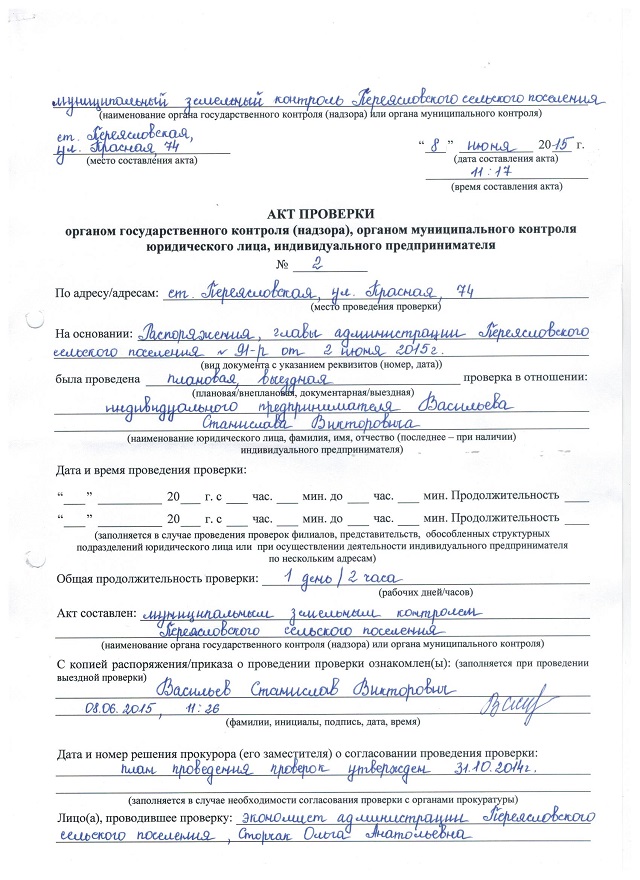 муниципальный земельный контроль Переясловского сельского поселения
(наименование органа государственного контроля (надзора) или органа муниципального контроля)
ст. Переясловская,
ул. Красная, 74
(место составления акта)
“ 8 ” июня 2015 г.
(дата составления акта)
11:17
(время составления акта)
АКТ ПРОВЕРКИ
органом государственного контроля (надзора), органом муниципального контроля
юридического лица, индивидуального предпринимателя
№ 2
По адресу/адресам: ст. Переясловская, ул. Красная, 74
(место проведения проверки)
На основании: Распоряжения, главы администрации Переясловского
сельского поселения № 91-р от 2 июня 2015г.
(вид документа с указанием реквизитов (номер, дата))
была проведена плановая, выездная проверка в отношении:
(плановая/внеплановая, документарная/выездная)
индивидуального предпринимателя Васильева
Станислава Викторовича
(наименование юридического лица, фамилия, имя, отчество (последнее – при наличии)
индивидуального предпринимателя)
Дата и время проведения проверки:
“___” ________ 20 ___ г. с ___ час. ___ мин. до ___ час. ___ мин. Продолжительность ___
“___” ________ 20 ___ г. с ___ час. ___ мин. до ___ час. ___ мин. Продолжительность ___
(заполняется в случае проведения проверок филиалов, представительств, обособленных структурных
подразделений юридического лица или при осуществлении деятельности индивидуального предпринимателя
по нескольким адресам)
Общая продолжительность проверки: 1 день / 2 часа
(рабочих дней/часов)
Акт составлен: муниципальным земельным контролем
Переясловского сельского поселения
(наименование органа государственного контроля (надзора) или органа муниципального контроля)
С копией распоряжения/приказа о проведении проверки ознакомлен(ы): (заполняется при проведении
выездной проверки)
Васильев Станислав Викторович
08.06.2015, 11:26
(фамилии, инициалы, подпись, дата, время)
Дата и номер решения прокурора (его заместителя) о согласовании проведения проверки:
план проведения проверок утвержден 31.10.2014г.
(заполняется в случае необходимости согласования проверки с органами прокуратуры)
Лицо(а), проводившее проверку: экономист администрации Переясловского
сельского поселения, Сторчак Ольга Анатольевна